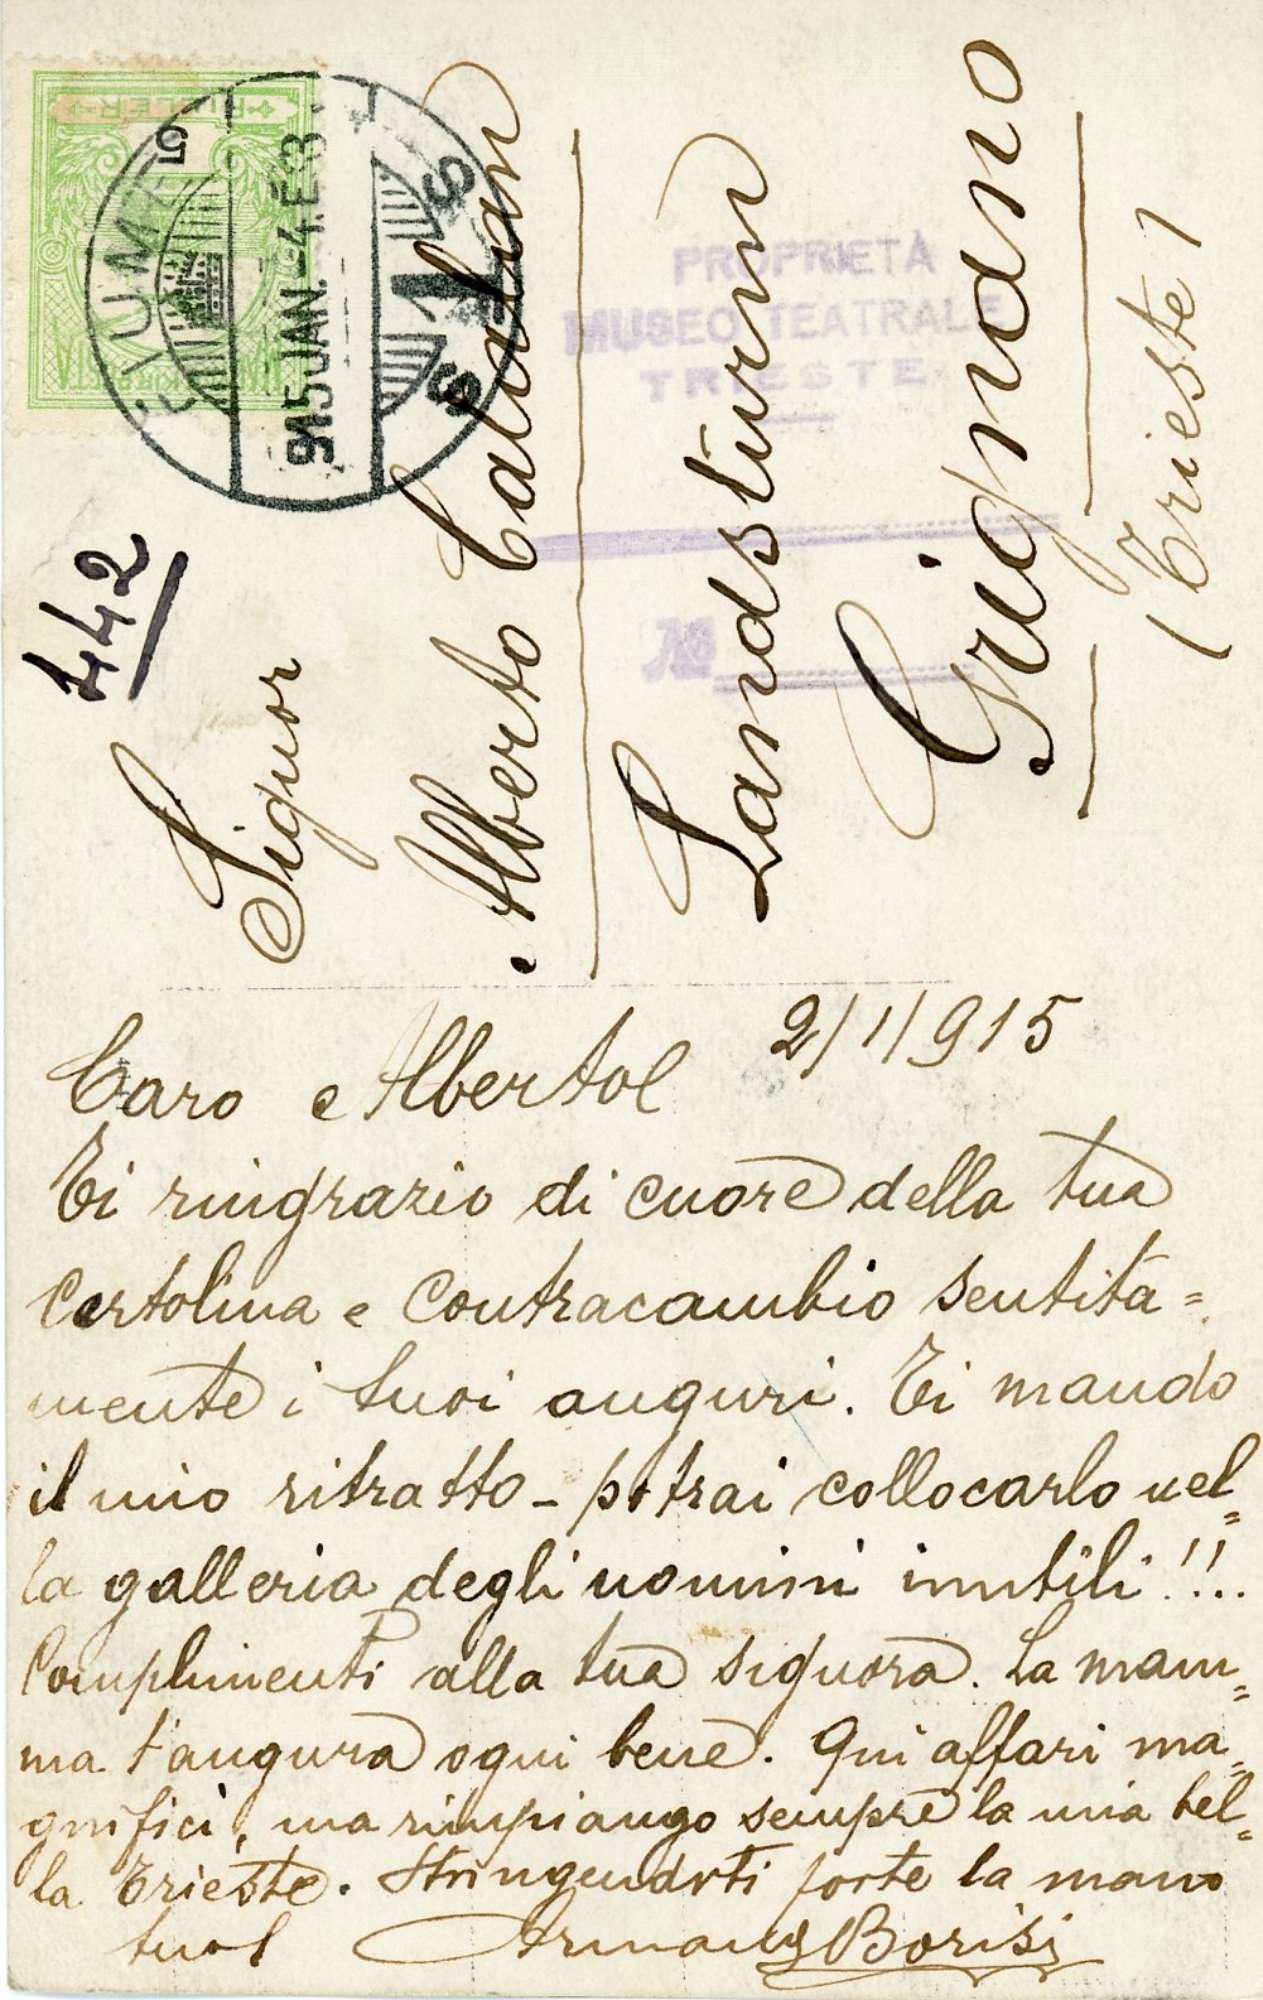 FILLER
FIUME
915 JAN. -4. E 8
442
Signor
Alberto Catalan
Landsturm
Grignano
(Trieste)
PROPRIETÀ
MUSEO TEATRALE
TRIESTE
No
2/1/915
Caro Alberto!
Ti ringrazio di cuore della tua
Cartolina e Contracambio sentita=
mente i tuoi auguri. Ti mando
il mio ritratto - potrai collocarlo nel=
la galleria degli uomini inutili!!..
Complimenti alla tua signora. La mam=
ma t'augura ogni bene. Qui affari ma=
gnifici, ma rimpiango sempre la mia bel=
la Trieste. Stringendoti forte la mano
tuo!
Armando Borisi